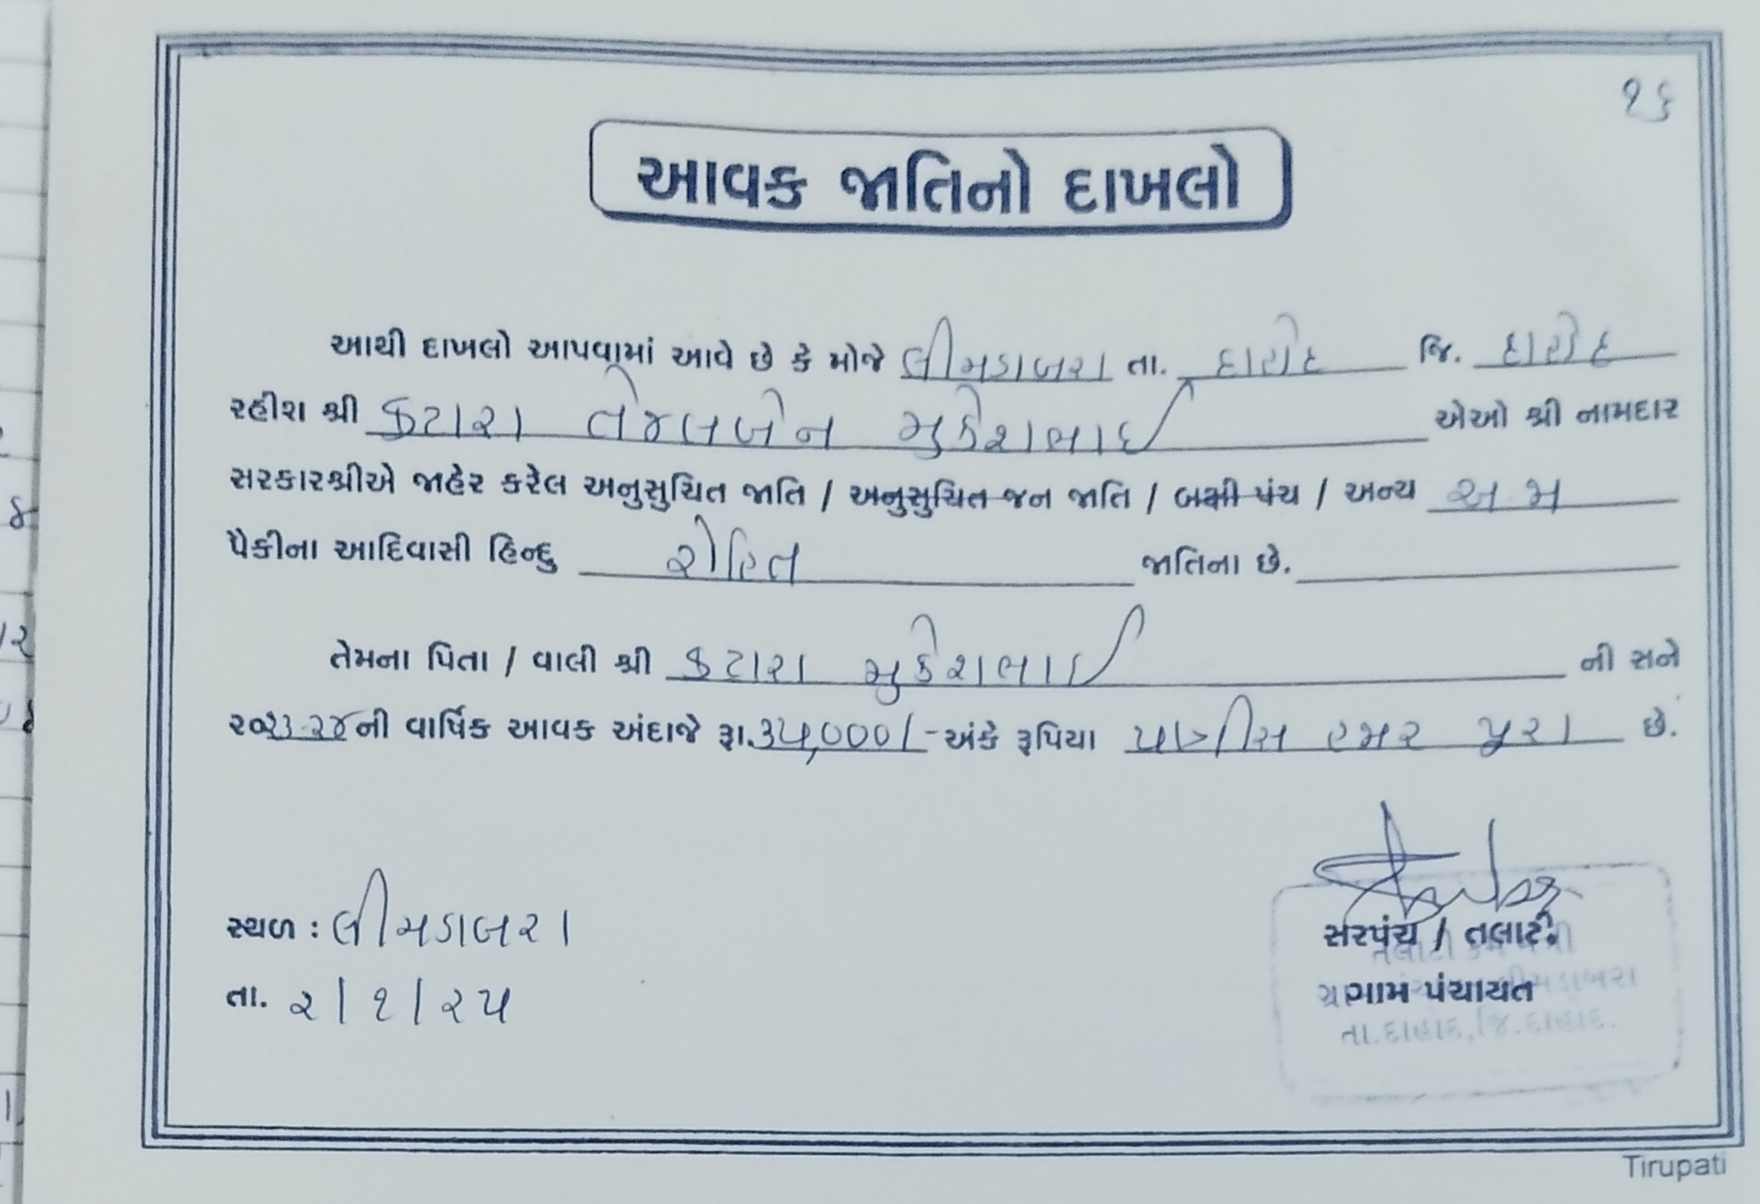 ૧૬
આવક જાતિનો દાખલો
આથી દાખલો આપવામાં આવે છે કે મોજે લીમડાબરા તા. દાહોદ જિ. દાહોદ
રહીશ શ્રી કટારા તેજલબેન મુકેશભાઈ એઓ શ્રી નામદાર
સરકારશ્રીએ જાહેર કરેલ અનુસુચિત જાતિ / અનુસુચિત જન જાતિ / બક્ષી પંચ / અન્ય
પૈકીના આદિવાસી હિન્દુ રોહિત જાતિના છે.
તેમના પિતા / વાલી શ્રી કટારા મુકેશભાઈ ની સને
૨૦૨૩-૨૪ની વાર્ષિક આવક અંદાજે રૂા.૩૫,૦૦૦/- અંકે રૂપિયા હજાર પુરા છે.
સ્થળ : લીમડાબરા
તા. ૨/૧/૨૫
સરપંચ / તલાટી
ગ્રામ પંચાયત
તા.દાહોદ, જિ.દાહોદ.
Tirupati